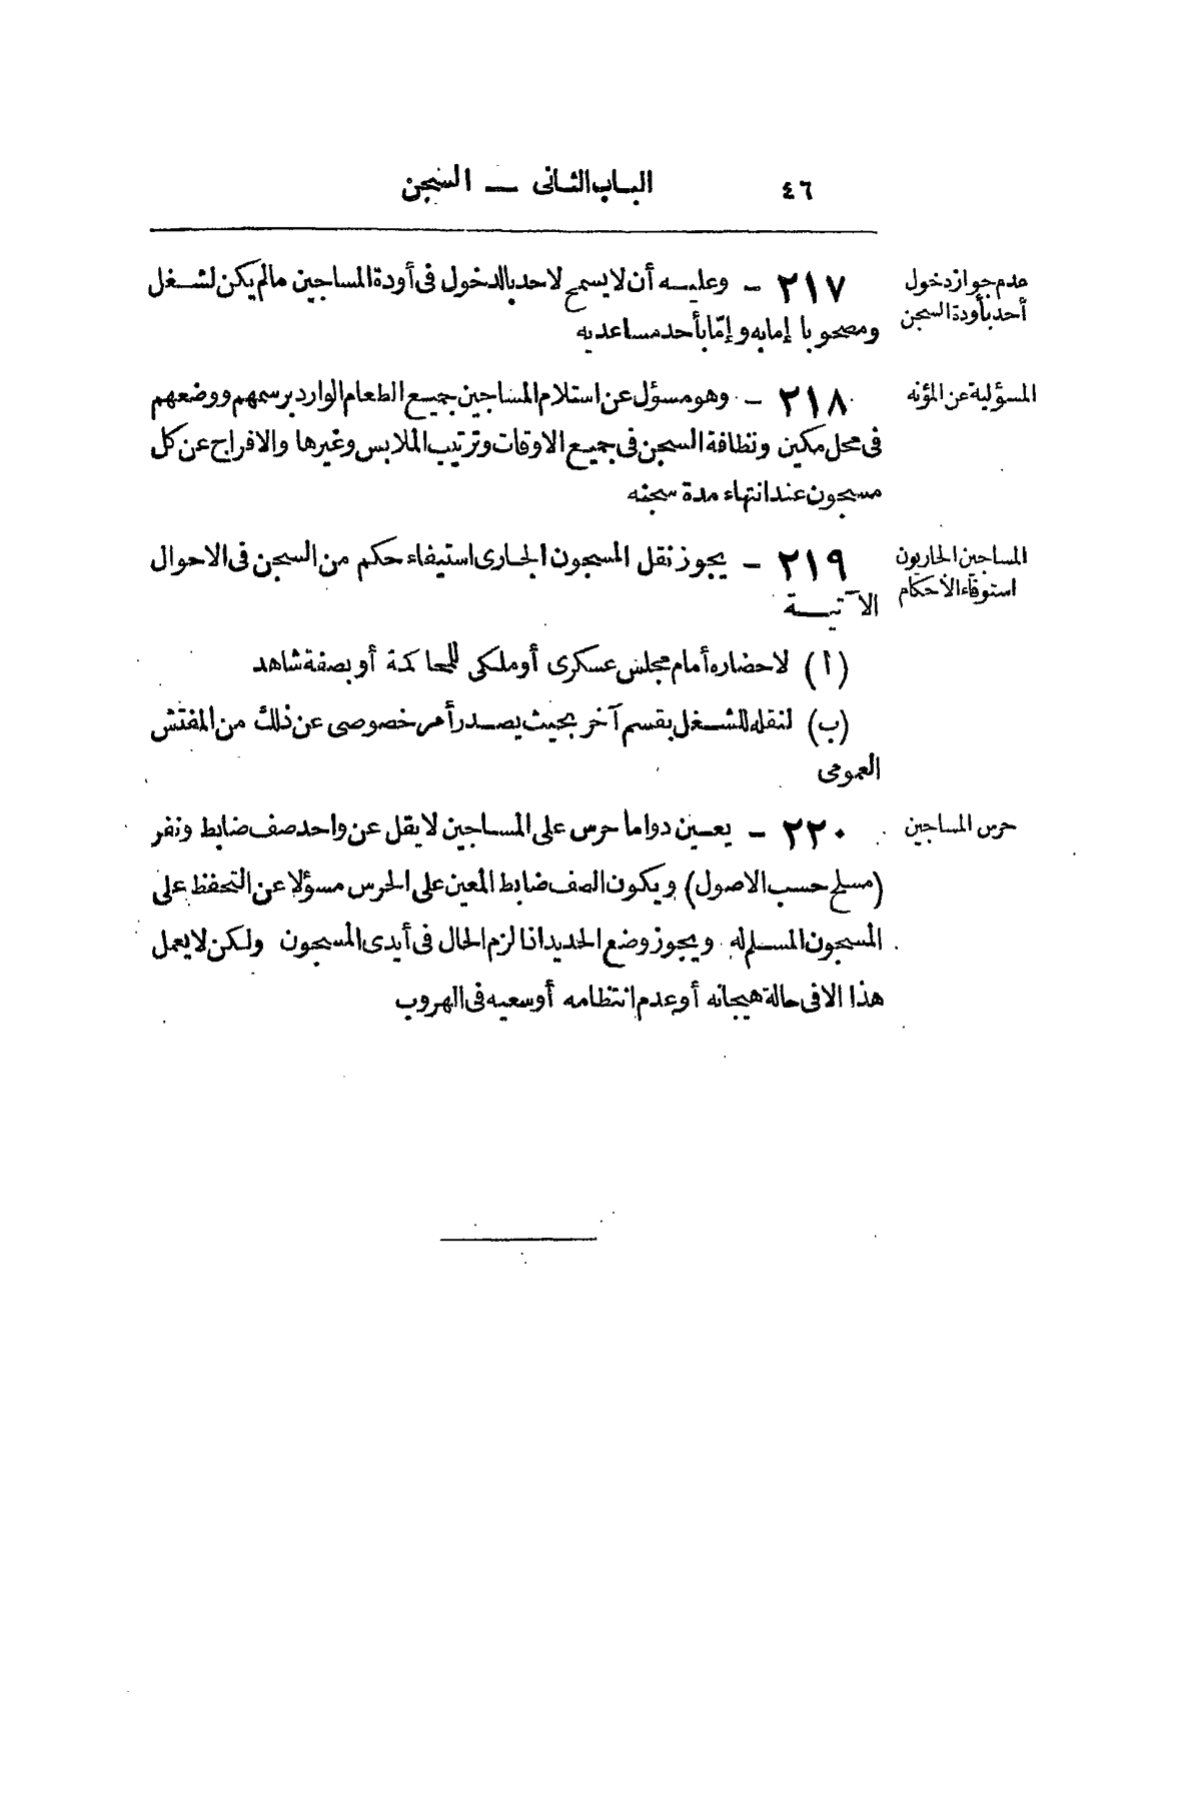 ٤٦ الباب الثانى — السجن
عدم جواز دخول
أحد بأودة السجن
٢١٧ - وعليه أن لا يسمح لاحد بالدخول فى أودة المساجين مالم يكن لشغل
ومصحوبا إمابه وإمّا بأحد مساعديه
المسؤلية عن المؤنه
٢١٨ - وهو مسؤل عن استلام المساجين جميع الطعام الوارد برسمهم ووضعهم
فى محل مكين ونظافة السجن فى جميع الاوقات وترتيب الملابس وغيرها والافراج عن كل
مسجون عند انتهاء مدة سجنه
المساجين الجاريون
استوفاء الأحكام
٢١٩ - يجوز نقل المسجون الجارى استيفاء حكم من السجن فى الاحوال
الآتية
(أ) لاحضاره أمام مجلس عسكرى أو ملكى للمحاكمة أو بصفة شاهد
(ب) لنقله للشغل بقسم آخر بحيث يصدر أمر خصوصى عن ذلك من المفتش
العمومى
حرس المساجين
٢٢٠ - يعين دواما حرس على المساجين لا يقل عن واحد صف ضابط ونفر
(مسلح حسب الاصول) ويكون الصف ضابط المعين على الحرس مسؤلا عن التحفظ على
المسجون المسلم له ويجوز وضع الحديد اذا لزم الحال فى أيدى المسجون ولكن لا يعمل
هذا الا فى حالة هيجانه أو عدم انتظامه أو سعيه فى الهروب